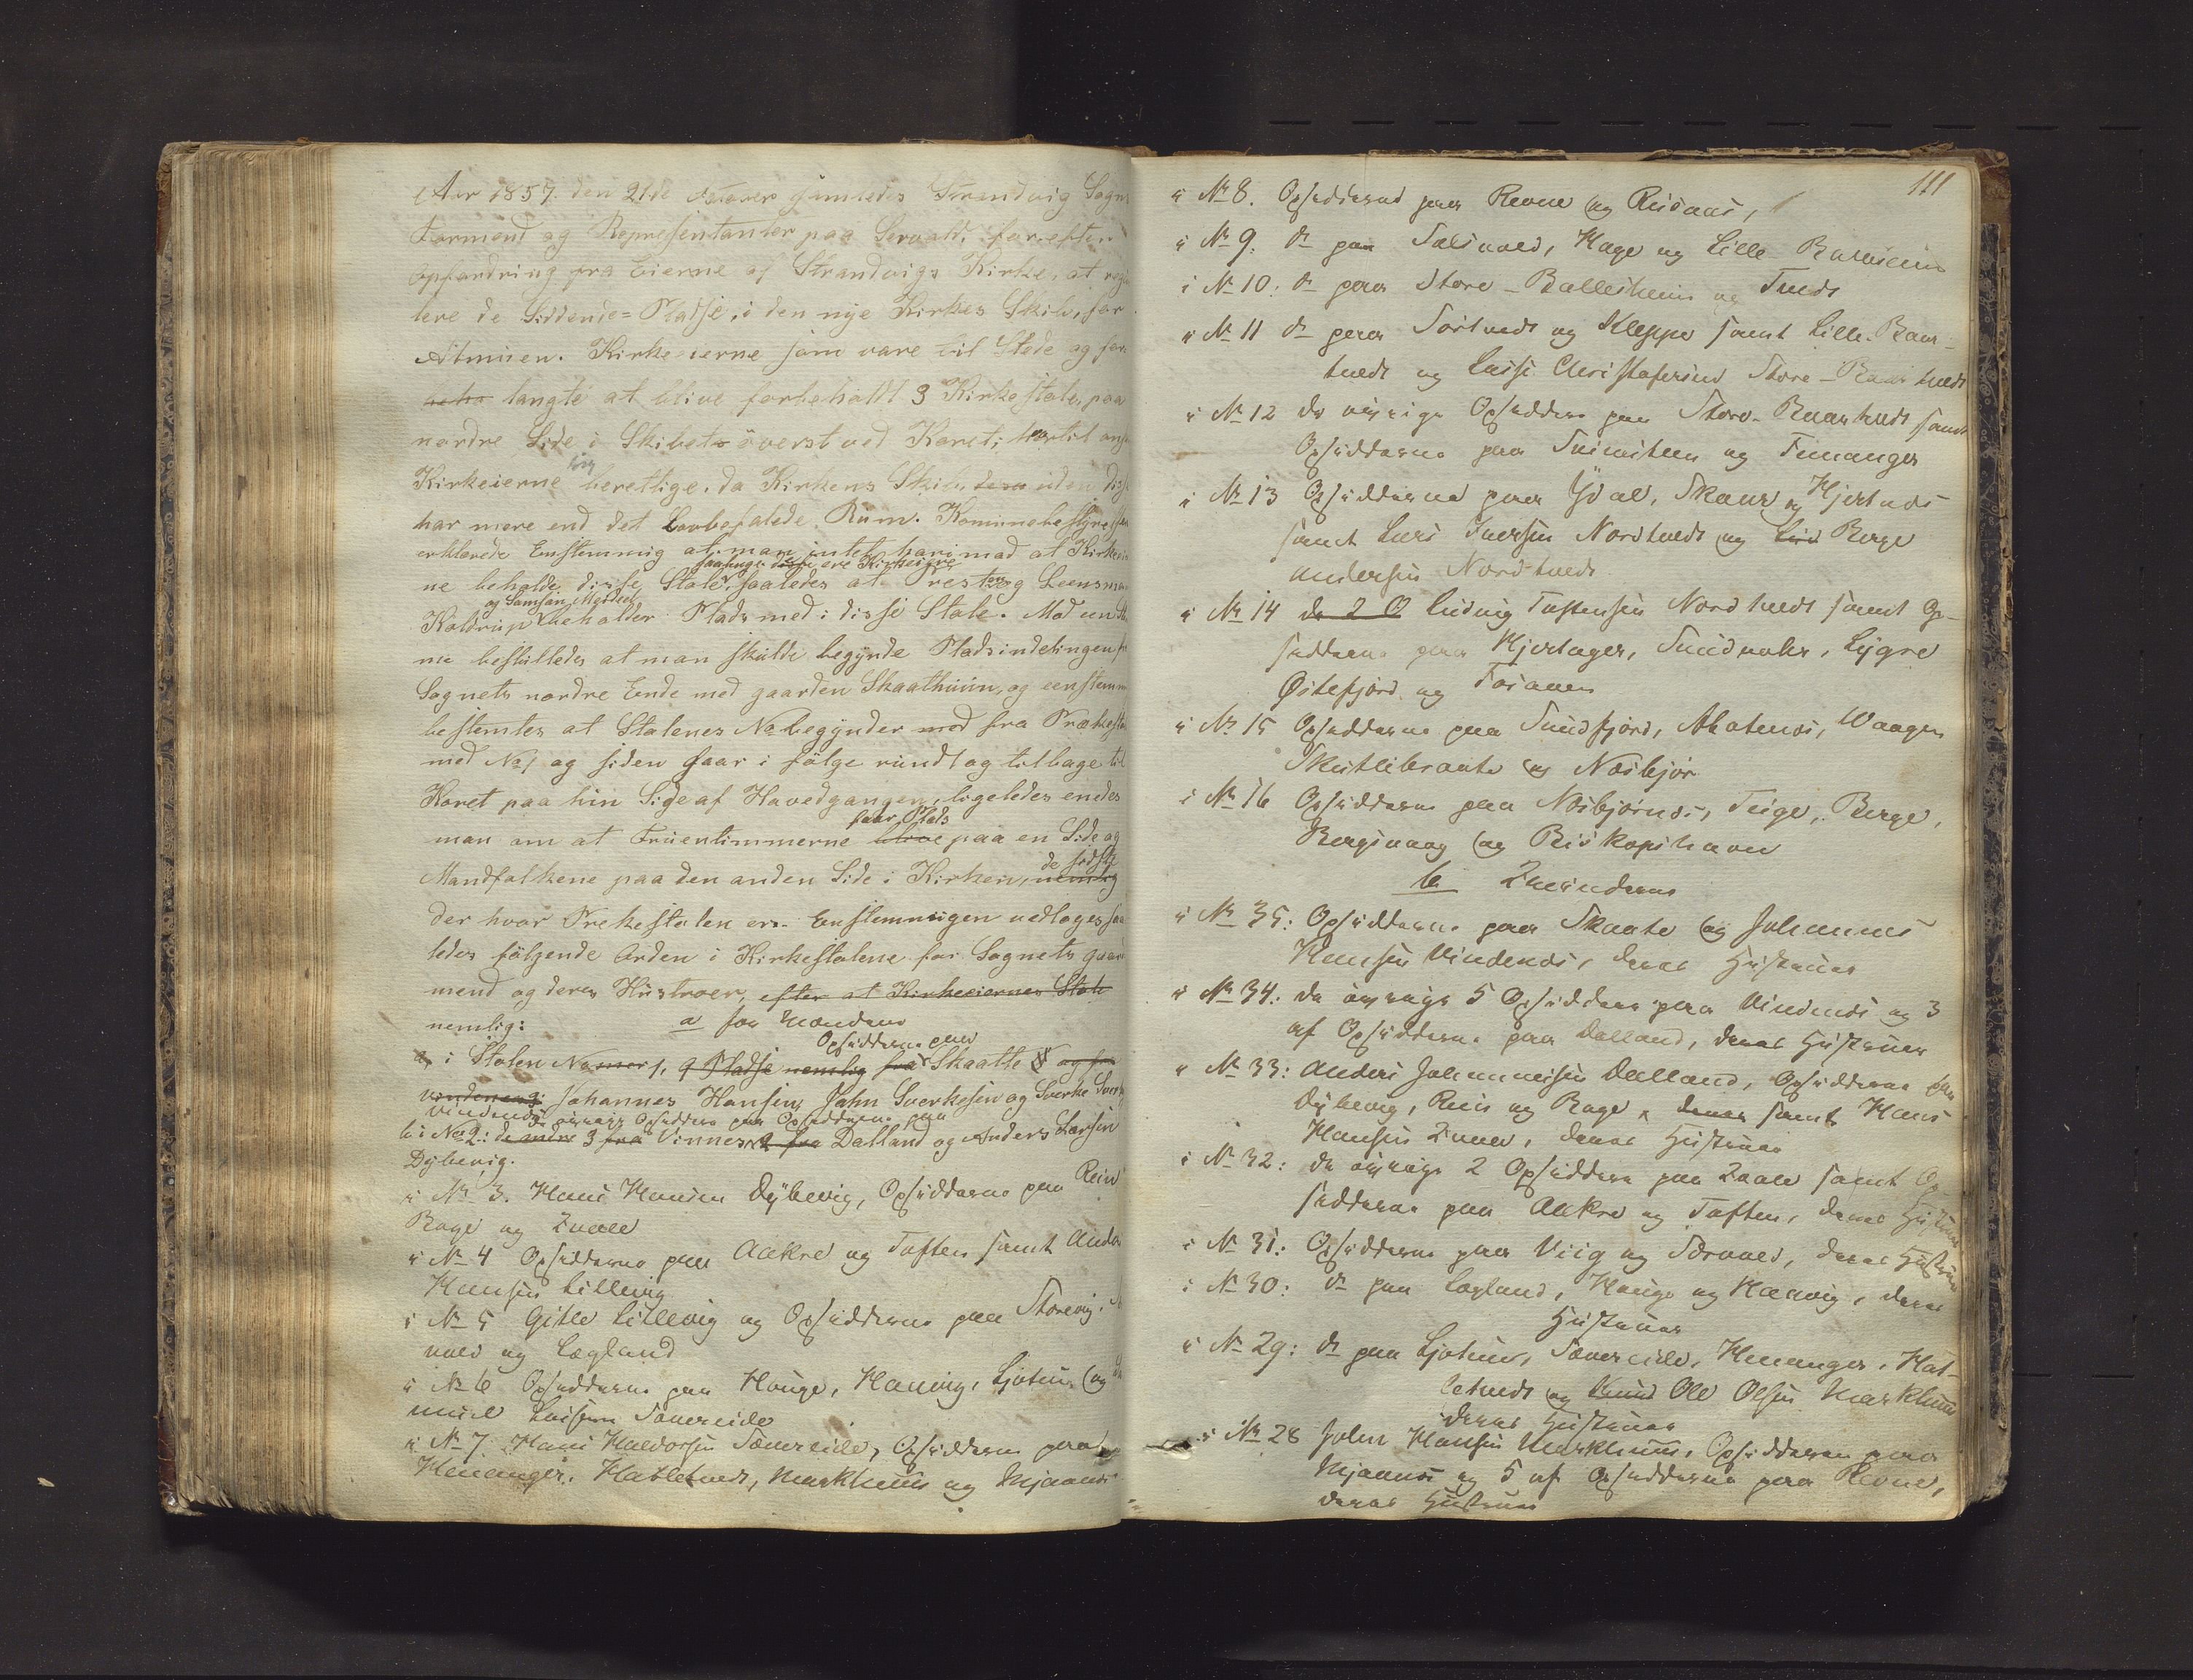 Aar 1857. den 21de samledes Strandvig Sogns
Formænd og Repræsentanter paa for efter
Opfordring fra Eierne af Strandvigs Kirke, at regu
lere de Siddende=Pladse, i den nye Kirkes Skib, for
Almuen. Kirkeeierne som vare til Stede og for
langte at blive forbeholdt 3 Kirkestole, paa
nordre Side i Skibet øverst ved Koret; hvortil ansaa
Kirkeierne sig beretlige, da Kirkens Skib uden disse
har mere end det Lovbefalede Rum. Kommunebestyrelsen
erklærede Enstemmig at man intet har imod at Kirkeeier
ne beholde disse Stole saalænge disse ere Kirkeeiere saaledes at Presten og Leensmand
Koldrup og Samson beholder Plads med i disse Stole. Mod
ne besluttedes at man skulde begynde Pladsindelingen fra
Sognets nordre Ende med gaarden Skaathuun, og eenstemmig
bestemtes at Stolenes No begynder med fra Prækestolen
med No 1 og siden gaar i følge rundt og tilbage til
Koret paa hin Side af Hovedgangen, ligeledes enedes
man om at Fruentimmerne faar Plads paa en Side og
Mandfolkene paa den anden Side i Kirken, de sidste nemlig
der hvor Prekestolen er. Enstemmigen vedtoges saa
ledes følgende Orden i Kirkestolene for Sognets gaard
mend og deres Hustroer, efter at Kirkeeiernes Stole
nemlig: a for Mændene
i Stolen Nomer 1, 9 Pladse nemlig fra Opsidderne paa Skaatte og fra
Johannes Hansen, John Sverkesen og Sverke Sverke
i No 2: de øvrige Opsiddere paa Vindenes 3 fra Vinnes 2 fra Opsidderne paa Dalland og Anders Larsen
Dybevig.
i No 3. Hans Hansen Dybevig, Opsidderne paa Rein
Bage og Qvale
i No 4 Opsidderne paa Aakre og Toften samt Anders
Hansen Lillevig
i No 5 Gitle Lillevig og Opsidderne paa Storevig,
vold og Lægland
i No 6 Opsidderne paa Houge, Haavig, Ljotun og
Larsen Sævereide
i No 7. Hans Haldorsen Sævereide, Opsidderne paa
Henanger, Hatletvedt, Markhuus og Mjaanes
111
i No 8. Opsidderne paa Revne og Riisnæs,
i No 9. do paa Solsvold, Hage og Lille Baldersheim
i No 10: do paa Store-Balleshein og Tvedt
i No 11 do paa Sørtvedt og Kleppe samt Lille-Baar-
tvedt og Lasse Christofersen Store-Baartvedt
i No 12 de øvrige Opsiddere paa Store-Baartvedt samt
Opsidderne paa og Fimanger
i No 13 Opsidderne paa Ydal, Skaar og Hjertnes
samt Lars Iversen Nordtvedt og Berge
Andersen Nordtvedt
i No 14 de 2 O Ludvig Tostensen Nordtvedt samt Op-
sidderne paa Hjertager, Sundvoler, Lygre
Østefjord og Tosaven
i No 15 Opsidderne paa Sundfjord, Abotsnes, Waagen
og Nosbjør
i No 16 Opsidderne paa Nosbjørnes, Teige, Berge,
Bergsvaag og Biskopshavn
b. Qvinderne
i No 35: Opsidderne paa Skaate og Johannes
Hansen Vindenæs, deres Hustruer
i No 34: de øvrige 5 Opsiddere paa Vindenes og 3
af Opsidderne paa Dalland, deres Hustruer
i No 33: Anders Johannessen Dalland, Opsidderne paa
Dybevig, Rein og Bage, deres samt Hans
Hansen Qvale, deres Hustruer
i No 32: de øvrige 2 Opsiddere paa Qvale samt Op-
sidderne paa Aakre og Toften, deres Hustruer
i No 31: Opsidderne paa Viig og Sørvold, deres Hustruer
i No 30: do paa Lægland, Houge og Haavig, deres
Hustruer
i No 29: do paa Ljotun, Sævereide, Henanger, Hat-
letvedt og Knud Ole Olsen Markhuus
deres Hustruer
i No 28 John Hansen Markhuus, Opsidderne paa
Mjaanes og 5 af Opsidderne paa Revne,
deres Hustruer